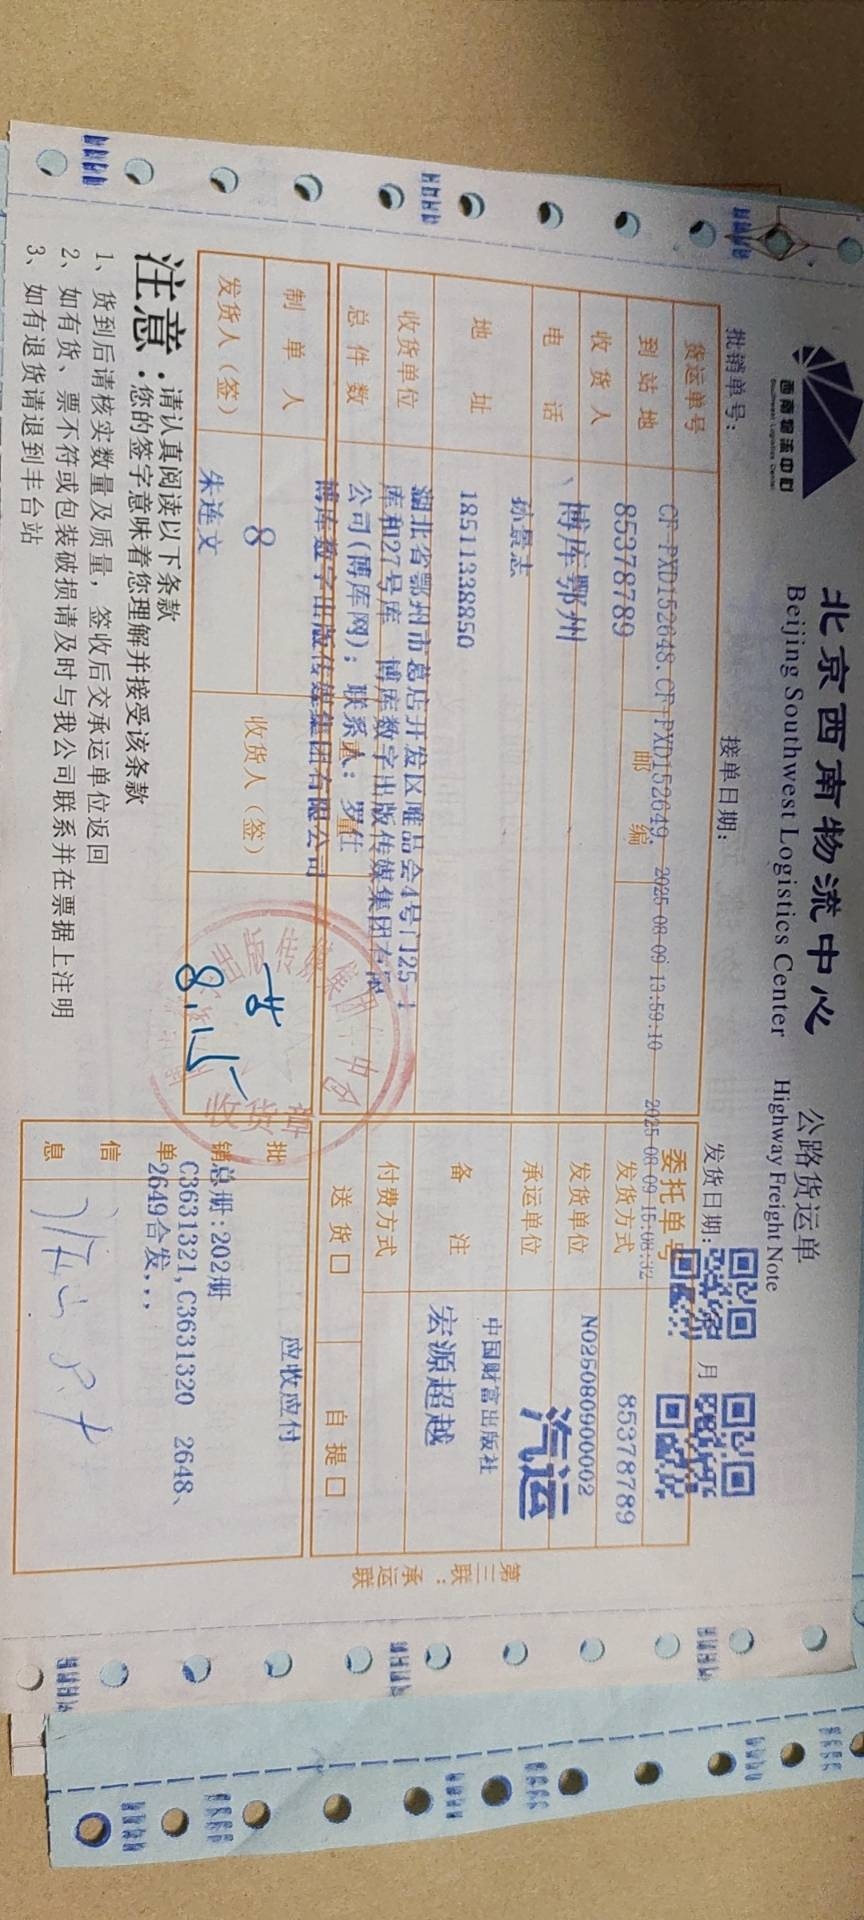 西南物流中心
Southwest Logistics Center
北京西南物流中心
Beijing Southwest Logistics Center
公路货运单
Highway Freight Note
批销单号：
接单日期：
发货日期：
月
货运单号
CF-PXD152648,CF-PXD152649,
2025-08-09 13:59:10
2025-08-09 15:08:32
委托单号
到站地
85378789
邮编
发货方式
85378789
收货人
博库鄂州
发货单位
N025080900002
电话
孙景志
承运单位
汽运
地址
18511338850
备注
中国财富出版社
收货单位
湖北省鄂州市葛店开发区唯品会4号门25-1
库和27号库 博库数字出版传媒集团有限
付费方式
宏源超越
总件数
公司(博库网)；联系人：罗仕
博库数字出版传媒集团有限公司
送货口
自提口
制单人
8
收货人（签）
发货人（签）
朱连文
8.15
出版传媒集团
收货章
批销单信息
应收应付
总册:202册
C3631321,C3631320 2648、
2649合发,,,
第三联：承运联
注意：
请认真阅读以下条款
您的签字意味着您理解并接受该条款
1、货到后请核实数量及质量，签收后交承运单位返回
2、如有货、票不符或包装破损请及时与我公司联系并在票据上注明
3、如有退货请退到丰台站